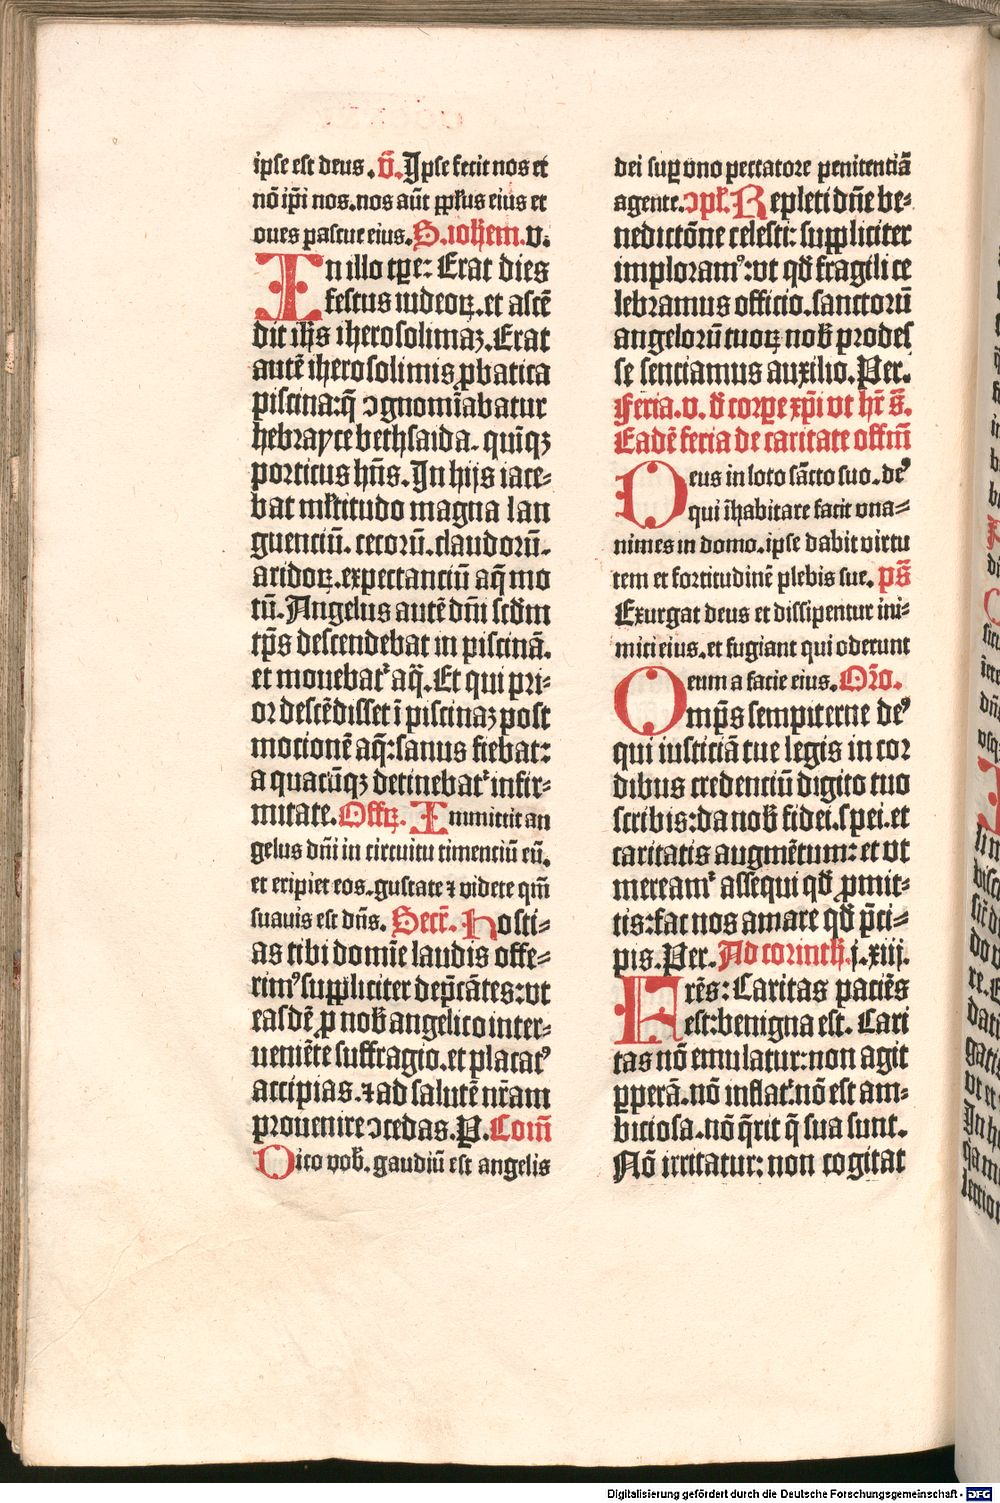 ipse est deus. V̄. Ipse fecit nos et
nō ip̄i nos. nos aūt pp̄lus eius et
oues pascue eius. S. ioh̄em. v.
In illo tp̄e: Erat dies
festus iudeoꝝ. et ascē
dit ih̄s iherosolimaꝫ. Erat
autē iherosolimis ꝓbatica
piscina: q̄ ꝯgnomīabatur
hebrayce bethsaida. quīqꝫ
porticus hn̄s. In hijs iace-
bat ml̄titudo magna lan
guenciū. cecorū. claudorū.
aridoꝝ. expectanciū aq̄ mo
tū. Angelus autē dn̄i scd̄m
tp̄s descendebat in piscinā.
et mouebat᷑ aq̄. Et qui pri-
or descēdisset ī piscinaꝫ post
mocionē aq̄: sanus fiebat:
a quacūqꝫ detinebat᷑ infir-
mitate. Offꝝ. Immittit an
gelus dn̄i in circuitu timenciū eū.
et eripiet eos. gustate ⁊ videte qm̄
suauis est dn̄s. Secr̄. Hosti-
as tibi domīe laudis offe-
rimꝰ supp̄liciter dep̄cātes: vt
easdē ꝑ nob̄ angelico inter-
ueniēte suffragio. et placatꝰ
accipias. ⁊ ad salutē nr̄am
prouenire ꝯcedas. P. Com̄
Dico vob̄. gaudiū est angelis
dei suꝑ vno peccatore penitentiā
agente. ꝯpl̄. Repleti dn̄e be-
nedictōne celesti: supp̄liciter
imploramꝰ: vt qd̄ fragili ce
lebramus officio. sanctorū
angelorū tuoꝝ nob̄ prodes
se sentiamus auxilio. Per.
Feria. v. d̄ corpe xp̄i vt hr̄ s̄.
Eadē feria de caritate offm̄
Deus in loco sācto suo. deꝰ
qui īhabitare facit vna-
nimes in domo. ipse dabit virtu
tem et fortitudinē plebis sue. ps̄
Exurgat deus et dissipentur ini-
mici eius. et fugiant qui oderunt
eum a facie eius. Or̄o.
Omp̄s sempiterne deꝰ
qui iusticiā tue legis in cor
dibus credenciū digito tuo
scribis: da nob̄ fidei. spei. et
caritatis augmētum: et vt
meream᷑ assequi qd̄ ꝓmit-
tis: fac nos amare qd̄ p̄ci-
pis. Per. Ad corinth̄. j. xiij.
Frēs: Caritas paciēs
est: benigna est. Cari
tas nō emulatur: non agit
ꝑperā. nō inflat᷑. nō est am-
biciosa. nō q̄rit q̄ sua sunt.
Nō irritatur: non cogitat
Digitalisierung gefördert durch die Deutsche Forschungsgemeinschaft - DFG